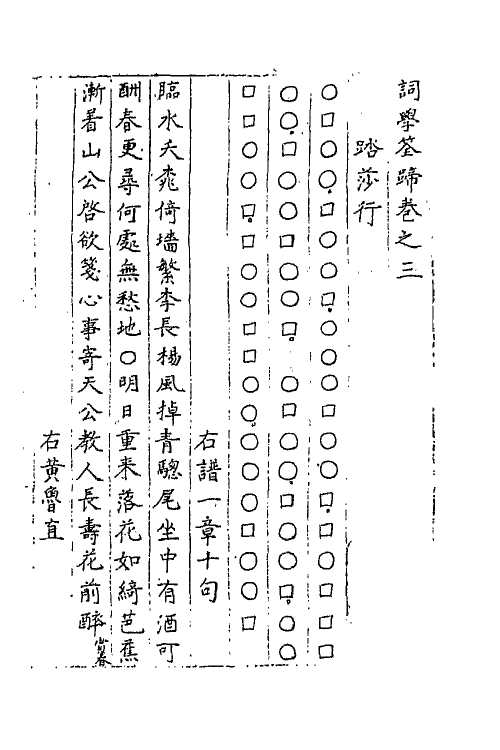 詞學筌蹄卷之三
踏莎行
右譜一章十句
臨水夭桃倚墻繁李長楊風掉青驄尾坐中有酒可
酬春更尋何處無愁地○明日重来落花如綺芭蕉
漸着山公啓欲箋心事寄天公教人長壽花前醉賞春
右黃魯直